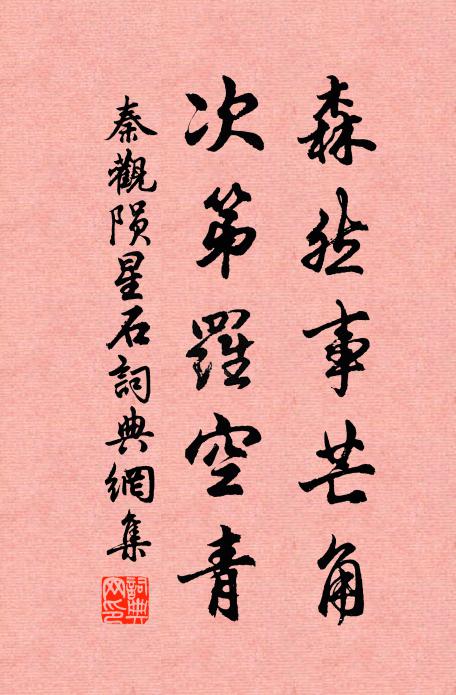 森然事芒角
次第羅空青
秦觀陨星石詞典網集
詞典
网印